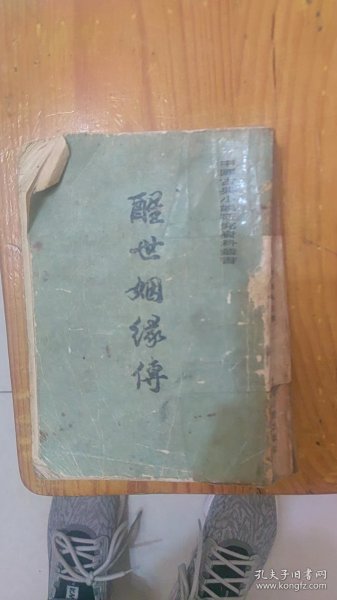 中國古典小說研究資料叢書
醒世姻緣傳
孔夫子旧书网
www.kongfz.com